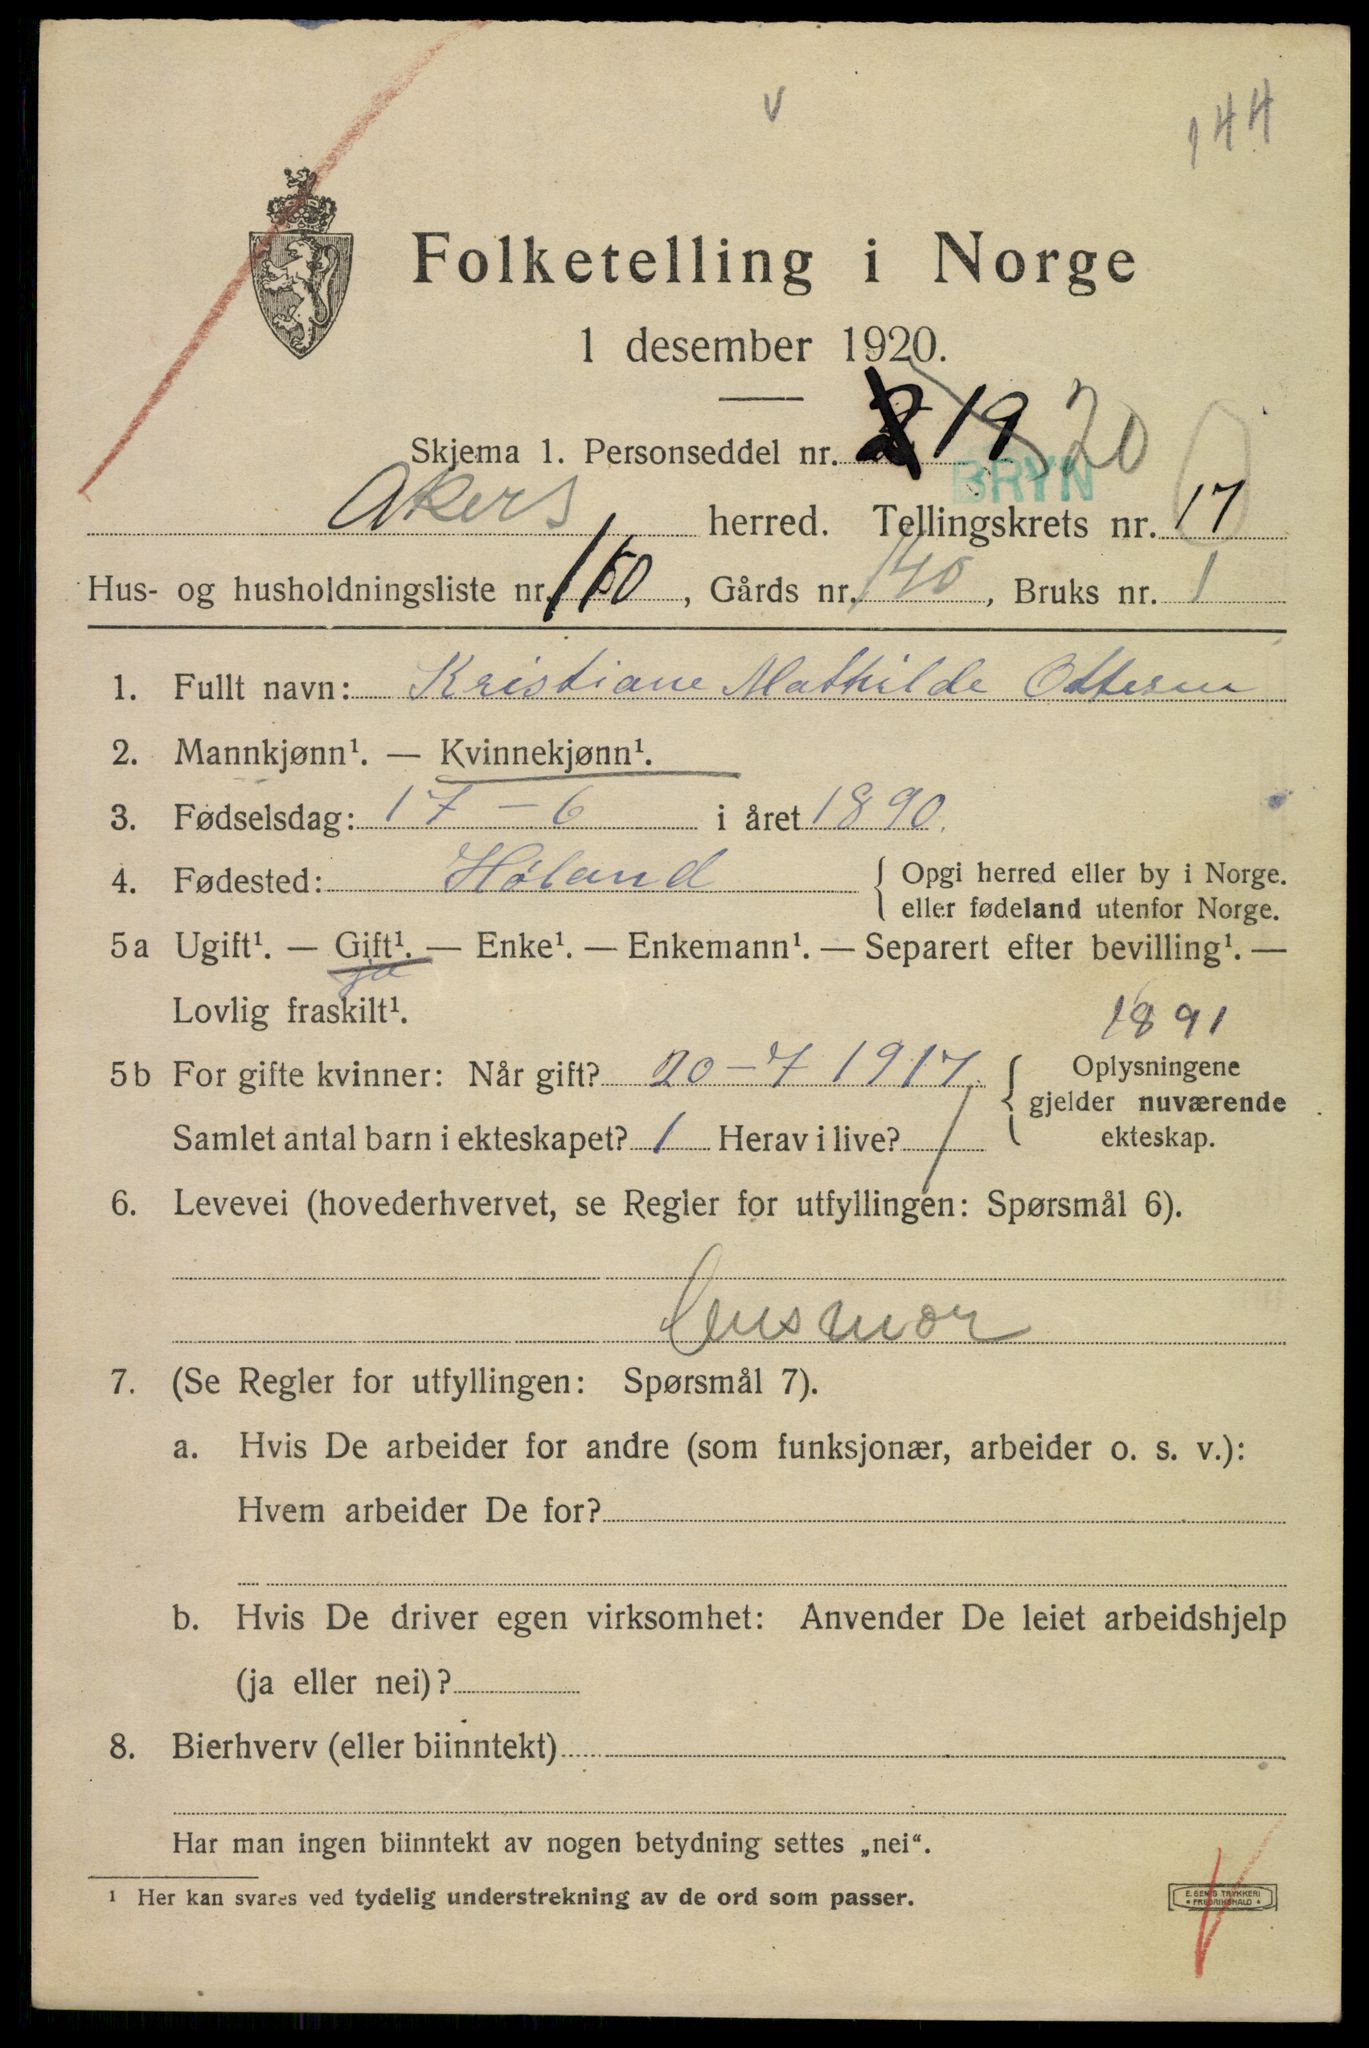 v
144
Folketelling i Norge
1 desember 1920.
Skjema 1. Personseddel nr. 2 19 20
BRYN
Akers herred. Tellingskrets nr. 17
Hus- og husholdningsliste nr. 150, Gårds nr. 140, Bruks nr. 1
1. Fullt navn: Kristiane Mathilde Ottersen
2. Mannkjønn¹. — Kvinnekjønn¹.
3. Fødselsdag: 17 – 6 i året 1890.
4. Fødested: Høland { Opgi herred eller by i Norge.
eller fødeland utenfor Norge.
5a Ugift¹. — Gift¹. — Enke¹. — Enkemann¹. — Separert efter bevilling¹. —
ja
Lovlig fraskilt¹.
1891
5b For gifte kvinner: Når gift? 20 – 7 1917. { Oplysningene
gjelder nuværende
ekteskap.
Samlet antal barn i ekteskapet? 1 Herav i live? 1
6. Levevei (hovederhvervet, se Regler for utfyllingen: Spørsmål 6).
7. (Se Regler for utfyllingen: Spørsmål 7).
a. Hvis De arbeider for andre (som funksjonær, arbeider o. s. v.):
Hvem arbeider De for?
b. Hvis De driver egen virksomhet: Anvender De leiet arbeidshjelp
(ja eller nei)?
8. Bierhverv (eller biinntekt)
Har man ingen biinntekt av nogen betydning settes „nei“.
¹ Her kan svares ved tydelig understrekning av de ord som passer.
E. SEM'S TRYKKERI
FREDRIKSHALD